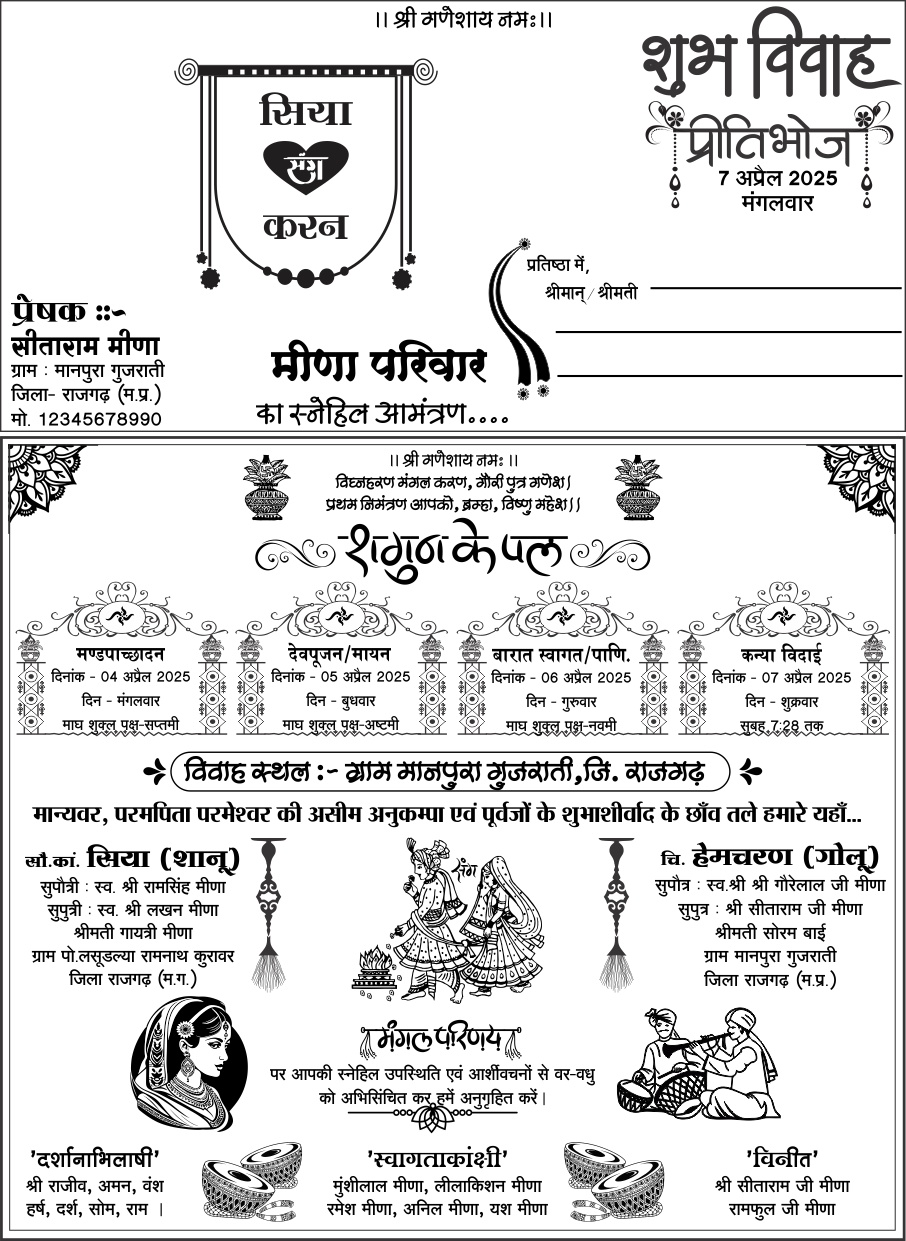 ।। श्री गणेशाय नमः।।
शुभ विवाह
प्रीतिभोज
7 अप्रैल 2025
मंगलवार
सिया
संग
करन
प्रतिष्ठा में,
श्रीमान् / श्रीमती
प्रेषक ::-
सीताराम मीणा
ग्राम : मानपुरा गुजराती
जिला- राजगढ़ (म.प्र.)
मो. 12345678990
मीणा परिवार
का स्नेहिल आमंत्रण....
।। श्री गणेशाय नमः ।।
विघ्नहरण मंगल करण, गौरी पुत्र गणेश।
प्रथम निमंत्रण आपको, ब्रम्हा, विष्णु महेश।।
शगुन के पल
मण्डपाच्छादन
दिनांक - 04 अप्रैल 2025
दिन - मंगलवार
माघ शुक्ल पृक्ष-सप्तमी
देवपूजन/मायन
दिनांक - 05 अप्रैल 2025
दिन - बुधवार
माघ शुक्ल पृक्ष-अष्टमी
बारात स्वागत/पाणि.
दिनांक - 06 अप्रैल 2025
दिन - गुरुवार
माघ शुक्ल पृक्ष-नवमी
कन्या विदाई
दिनांक - 07 अप्रैल 2025
दिन - शुक्रवार
सुबह 7:28 तक
विवाह स्थल :- ग्राम मानपुरा गुजराती,जि. राजगढ़
मान्यवर, परमपिता परमेश्वर की असीम अनुकम्पा एवं पूर्वजों के शुभाशीर्वाद के छाँव तले हमारे यहाँ...
सौ.कां. सिया (शानू)
सुपौत्री : स्व. श्री रामसिंह मीणा
सुपुत्री : स्व. श्री लखन मीणा
श्रीमती गायत्री मीणा
ग्राम पो.लसूडल्या रामनाथ कुरावर
जिला राजगढ़ (म.ग.)
संग
चि. हेमचरण (गोलू)
सुपौत्र : स्व.श्री श्री गौरेलाल जी मीणा
सुपुत्र : श्री सीताराम जी मीणा
श्रीमती सोरम बाई
ग्राम मानपुरा गुजराती
जिला राजगढ़ (म.प्र.)
मंगल परिणय
पर आपकी स्नेहिल उपस्थिति एवं आर्शीवचनों से वर-वधु
को अभिसिंचित कर हमें अनुगृहित करें।
'दर्शानाभिलाषी'
श्री राजीव, अमन, वंश
हर्ष, दर्श, सोम, राम ।
'स्वागताकांक्षी'
मुंशीलाल मीणा, लीलाकिशन मीणा
रमेश मीणा, अनिल मीणा, यश मीणा
'विनीत'
श्री सीताराम जी मीणा
रामफुल जी मीणा